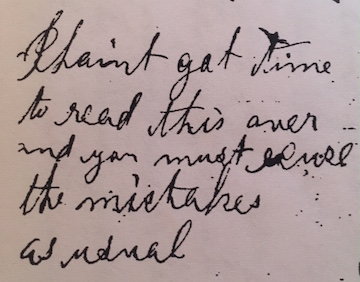 I haint got time
to read this over
and you must excuse
the mistakes
as usual